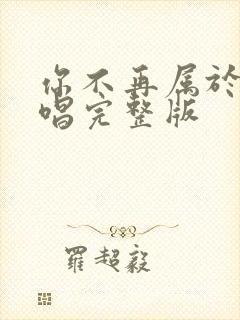 你不再属於
唱完整版
羅超毅